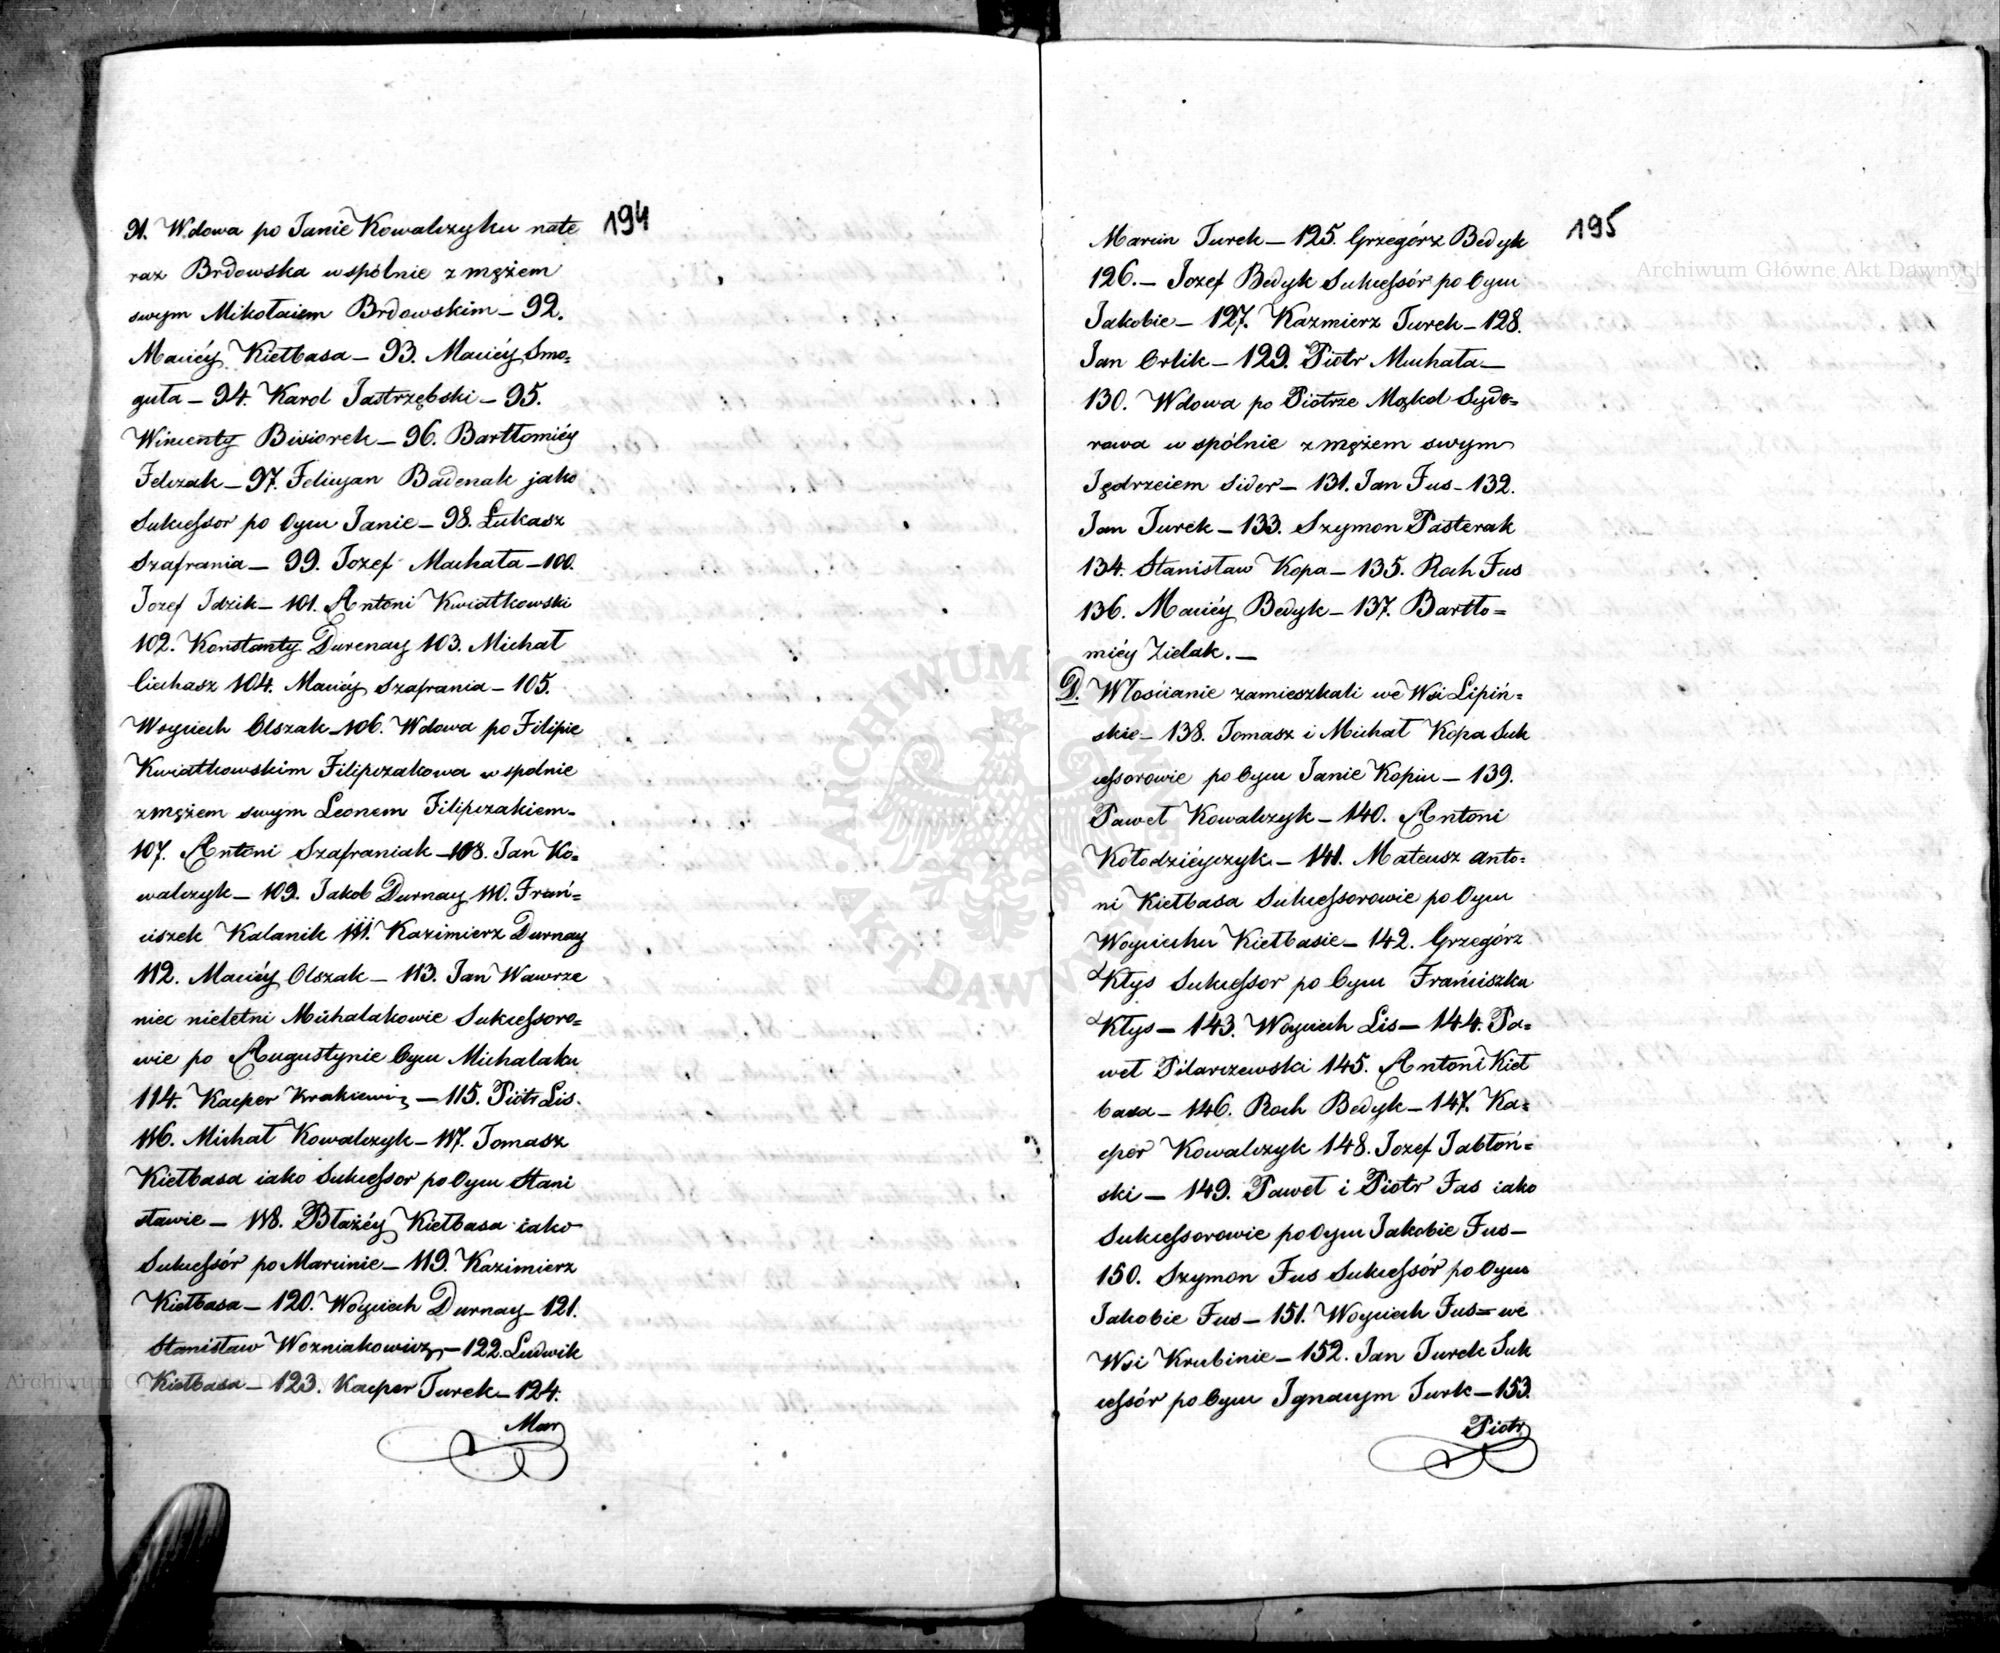 194
91. Wdowa po Janie Kowalczyku nate
raz Brdowska wspólnie z mężem
swym Mikołaiem Brdowskim — 92.
Maciéy Kiełbasa — 93. Maciéy Smo=
guła — 94. Karol Jastrzębski — 95.
Wincenty Bisiorek — 96. Bartłomiéy
Felczak — 97. Felicyan Badenak jako
Sukcessor po Oycu Janie — 98. Łukasz
Szafrania — 99. Jozef Machała — 100.
Jozef Idzik — 101. Antoni Kwiatkowski
102. Konstanty Durenay 103. Michał
Ciechasz 104. Maciéy Szafrania — 105.
Woyciech Olszak — 106. Wdowa po Filipie
Kwiatkowskim Filipczakowa wspolnie
z mężem swym Leonem Filipczakiem —
107. Antoni Szafraniak — 108. Jan Ko=
walczyk — 109. Jakob Durnay 110. Fran=
ciszek Kalanik 111. Kazimierz Durnay
112. Maciéy Olszak — 113. Jan Wawrze
niec nieletni Michalakowie Sukcessoro=
wie po Augustynie Oycu Michalaku
114. Kacper Krakiewicz — 115. Piotr Lis.
116. Michał Kowalczyk — 117. Tomasz
Kiełbasa iako Sukcessor po Oycu Stani
sławie — 118. Błażéy Kiełbasa iako
Sukcessór po Marcinie — 119. Kazimierz
Kiełbasa — 120. Woyciech Durnay — 121.
Stanisław Wozniakowicz — 122. Ludwik
Kiełbasa — 123. Kacper Turek — 124.
Mar
195
Marcin Turek — 125. Grzegórz Bedyk
126. — Jozef Bedyk Sukcessór po Oycu
Jakobie — 127. Kazmierz Turek — 128.
Jan Orlik — 129. Piotr Muchała —
130. Wdowa po Piotrze Mozkol Sydo=
rowa wspólnie z mężem swym
Jędrzeiem Sider — 131. Jan Fus — 132.
Jan Turek — 133. Szymon Pasterak
134. Stanisław Kopa — 135. Roch Fus
136. Maciéy Bedyk — 137. Bartło=
miéy Zielak. —
D. Włościanie zamieszkali we Wsi Lipiń=
skie — 138. Tomasz i Michał Kopa Suk
cessorowie po Oycu Janie Kopiu — 139.
Paweł Kowalczyk — 140. Antoni
Kołodziéyczyk — 141. Mateusz Anto=
ni Kiełbasa Sukcessorowie po Oycu
Woyciechu Kiełbasie — 142. Grzegórz
Kłys Sukcessor po Oycu Franciszku
Kłys — 143. Woyciech Lis — 144. Pa=
weł Pilarczewski 145. Antoni Kieł
basa — 146. Roch Bedyk — 147. Ka=
cper Kowalczyk 148. Jozef Jabłoń=
ski — 149. Paweł i Piotr Fas iako
Sukcessorowie po Oycu Jakobie Fus —
150. Szymon Fus Sukcessór po Oycu
Jakobie Fus — 151. Woyciech Fus = we
Wsi Krubinie — 152. Jan Turek Suk
cessór po Oycu Ignacym Turk — 153.
Piotr
Archiwum Główne Akt Dawnych
ARCHIWUM GŁÓWNE AKT DAWNYCH